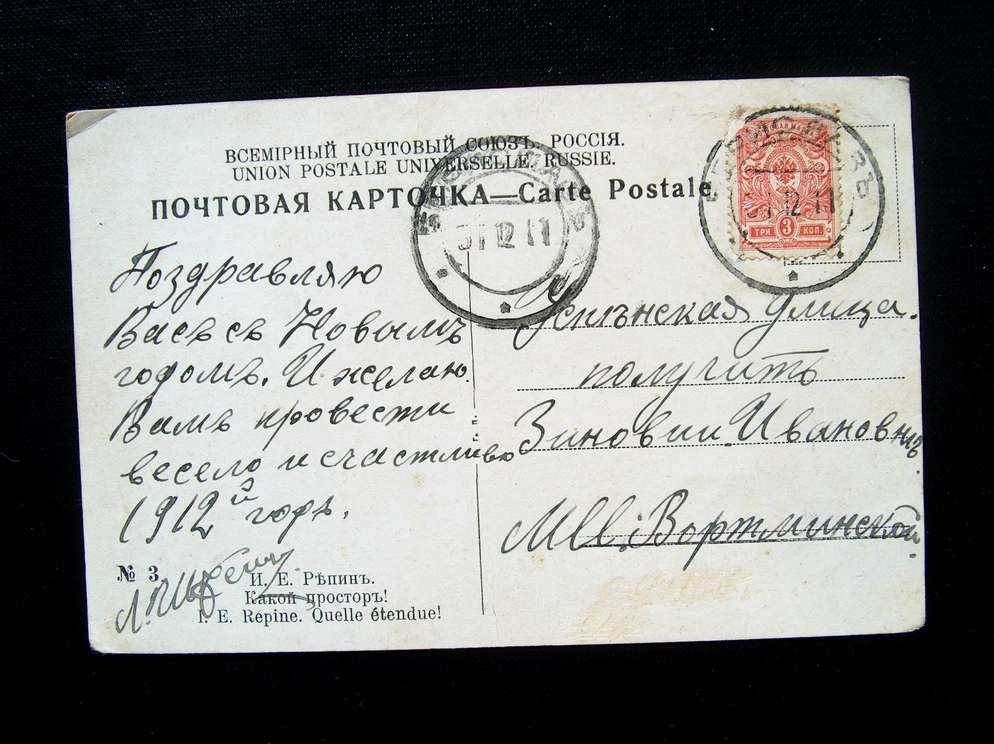 ВСЕМІРНЫЙ ПОЧТОВЫЙ СОЮЗЪ. РОССІЯ.
UNION POSTALE UNIVERSELLE. RUSSIE.
ПОЧТОВАЯ КАРТОЧКА—Carte Postale
31 12 11
31 12 11
ТРИ 3 КОП.
Поздравляю
Васъ съ Новымъ
годомъ. И желаю
Вамъ провести
весело и счастливо
1912й годъ.
Успѣнская Улица.
получить
Зиновии Ивановнѣ
Мll. Вортминской
№ 3.
И. Е. Рѣпинъ.
Какой просторъ!
I. E. Repine. Quelle étendue!